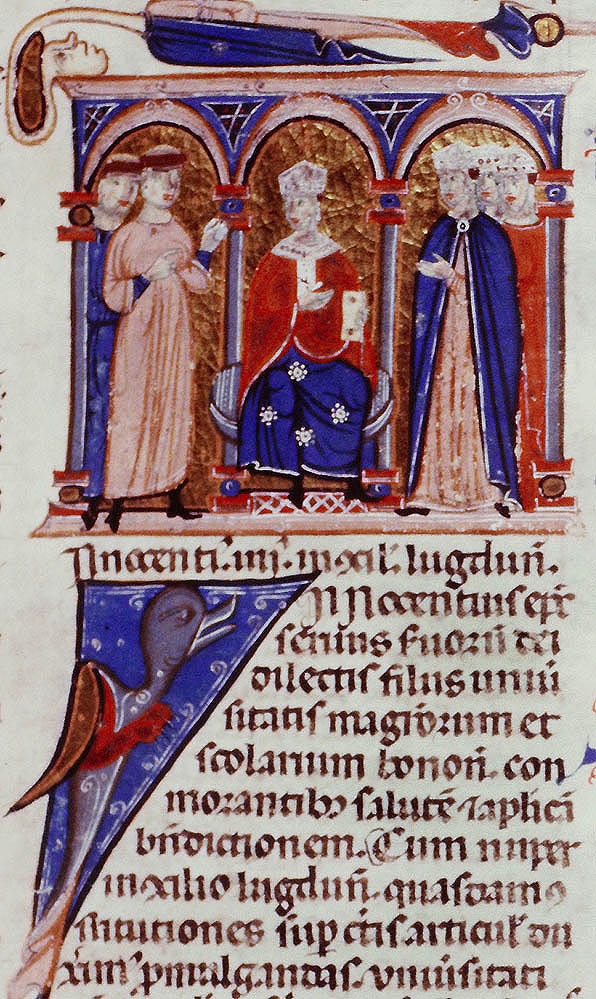 Innocenti᷒. iiij. in ꝯcil̄. lugdun̄.
INNocentius ep̄c
seruus ẜuorū dei
dilectis filiis uniū
sitatis magr̄orum et
scolarium bonon̄. con
morantib᷒ salutē ⁊ ap̄licā
bn̄dictionem. Cum nuper
in ꝯcilio lugdun̄. quasdam ꝯ
stitutiones sup̄ c̄tis articul̄ du
xim᷒ p̄mulgandas. uniūsitati